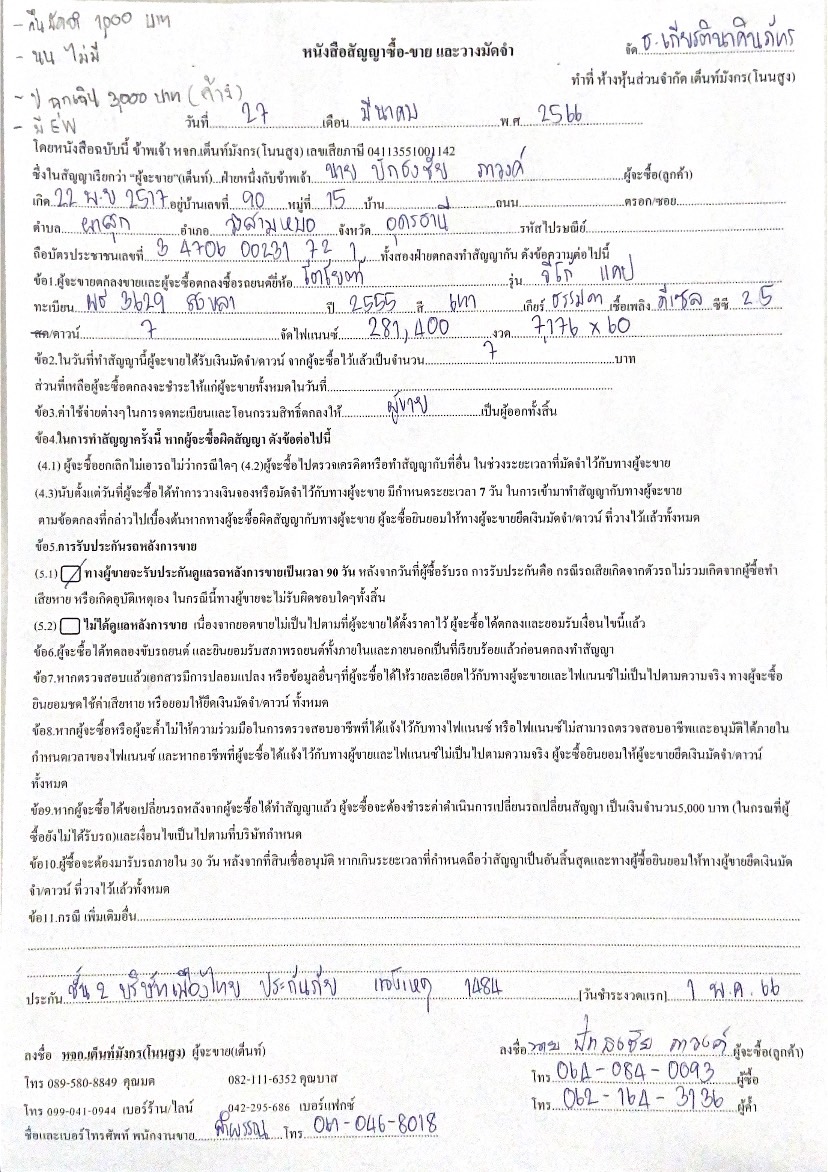 - คืนมัดจำ 1,000 บาท
- นน ไม่มี
- ป ฉุกเฉิน 3,000 บาท (ค้ำ)
- มี EW
หนังสือสัญญาซื้อ-ขาย และวางมัดจำ
จัด ธ.เกียรตินาคินภัทร
ทำที่ ห้างหุ้นส่วนจำกัด เต็นท์มังกร(โนนสูง)
วันที่ 27 เดือน มีนาคม พ.ศ 2566
โดยหนังสือฉบับนี้ ข้าพเจ้า หจก.เต็นท์มังกร(โนนสูง) เลขเสียภาษี 04113551001142
ซึ่งในสัญญาเรียกว่า "ผู้จะขาย"(เต็นท์)...ฝ่ายหนึ่งกับข้าพเจ้า นาย ปักธงชัย ภาวงค์ ผู้จะซื้อ(ลูกค้า)
เกิด 22 พ.ย 2517 อยู่บ้านเลขที่ 90 หมู่ที่ 15 บ้าน ถนน ตรอก/ซอย
ตำบล ผาสุก อำเภอ วังสามหมอ จังหวัด อุดรธานี รหัสไปรษณีย์
ถือบัตรประชาชนเลขที่ 3 4706 00231 72 1 ทั้งสองฝ่ายตกลงทำสัญญากัน ดังข้อความต่อไปนี้
ข้อ1.ผู้จะขายตกลงขายและผู้จะซื้อตกลงซื้อรถยนต์ยี่ห้อ โตโยต้า รุ่น วีโก้ แคป
ทะเบียน 3629 สงขลา ปี 2555 สี เทา เกียร์ ธรรมดา เชื้อเพลิง ดีเซล ซีซี 2.5
สด/ดาวน์ 7 จัดไฟแนนซ์ 281,400 งวด 7,176 x 60
ข้อ2.ในวันที่ทำสัญญานี้ผู้จะขายได้รับเงินมัดจำ/ดาวน์ จากผู้จะซื้อไว้แล้วเป็นจำนวน 7 บาท
ส่วนที่เหลือผู้จะซื้อตกลงจะชำระให้แก่ผู้จะขายทั้งหมดในวันที่
ข้อ3.ค่าใช้จ่ายต่างๆในการจดทะเบียนและโอนกรรมสิทธิ์ตกลงให้ ผู้ขาย เป็นผู้ออกทั้งสิ้น
ข้อ4.ในการทำสัญญาครั้งนี้ หากผู้จะซื้อผิดสัญญา ดังข้อต่อไปนี้
(4.1) ผู้จะซื้อยกเลิกไม่เอารถไม่ว่ากรณีใดๆ (4.2)ผู้จะซื้อไปตรวจเครดิตหรือทำสัญญากับที่อื่น ในช่วงระยะเวลาที่มัดจำไว้กับทางผู้จะขาย
(4.3)นับตั้งแต่วันที่ผู้จะซื้อได้ทำการวางเงินจองหรือมัดจำไว้กับทางผู้จะขาย มีกำหนดระยะเวลา 7 วัน ในการเข้ามาทำสัญญากับทางผู้จะขาย
ตามข้อตกลงที่กล่าวไปเบื้องต้นหากทางผู้จะซื้อผิดสัญญากับทางผู้จะขาย ผู้จะซื้อยินยอมให้ทางผู้จะขายยึดเงินมัดจำ/ดาวน์ ที่วางไว้แล้วทั้งหมด
ข้อ5.การรับประกันรถหลังการขาย
(5.1) ทางผู้ขายจะรับประกันดูแลรถหลังการขายเป็นเวลา 90 วัน หลังจากวันที่ผู้ซื้อรับรถ การรับประกันคือ กรณีรถเสียเกิดจากตัวรถไม่รวมเกิดจากผู้ซื้อทำ
เสียหาย หรือเกิดอุบัติเหตุเอง ในกรณีนี้ทางผู้ขายจะไม่รับผิดชอบใดๆทั้งสิ้น
(5.2) ไม่ได้ดูแลหลังการขาย เนื่องจากยอดขายไม่เป็นไปตามที่ผู้จะขายได้ตั้งราคาไว้ ผู้จะซื้อได้ตกลงและยอมรับเงื่อนไขนี้แล้ว
ข้อ6.ผู้จะซื้อได้ทดลองขับรถยนต์ และยินยอมรับสภาพรถยนต์ทั้งภายในและภายนอกเป็นที่เรียบร้อยแล้วก่อนตกลงทำสัญญา
ข้อ7.หากตรวจสอบแล้วเอกสารมีการปลอมแปลง หรือข้อมูลอื่นๆที่ผู้จะซื้อได้ให้รายละเอียดไว้กับทางผู้จะขายและไฟแนนซ์ไม่เป็นไปตามความจริง ทางผู้จะซื้อ
ยินยอมชดใช้ค่าเสียหาย หรือยอมให้ยึดเงินมัดจำ/ดาวน์ ทั้งหมด
ข้อ8.หากผู้จะซื้อหรือผู้จะค้ำไม่ให้ความร่วมมือในการตรวจสอบอาชีพที่ได้แจ้งไว้กับทางไฟแนนซ์ หรือไฟแนนซ์ไม่สามารถตรวจสอบอาชีพและอนุมัติได้ภายใน
กำหนดเวลาของไฟแนนซ์ และหากอาชีพที่ผู้จะซื้อได้แจ้งไว้กับทางผู้ขายและไฟแนนซ์ไม่เป็นไปตามความจริง ผู้จะซื้อยินยอมให้ผู้จะขายยึดเงินมัดจำ/ดาวน์
ทั้งหมด
ข้อ9.หากผู้จะซื้อได้ขอเปลี่ยนรถหลังจากผู้จะซื้อได้ทำสัญญาแล้ว ผู้จะซื้อจะต้องชำระค่าดำเนินการเปลี่ยนรถเปลี่ยนสัญญา เป็นเงินจำนวน5,000 บาท (ในกรณที่ผู้
ซื้อยังไม่ได้รับรถ)และเงื่อนไขเป็นไปตามที่บริษัทกำหนด
ข้อ10.ผู้ซื้อจะต้องมารับรถภายใน 30 วัน หลังจากที่สินเชื่ออนุมัติ หากเกินระยะเวลาที่กำหนดถือว่าสัญญาเป็นอันสิ้นสุดและทางผู้ซื้อยินยอมให้ทางผู้ขายยึดเงินมัด
จำ/ดาวน์ ที่วางไว้แล้วทั้งหมด
ข้อ11.กรณี เพิ่มเติมอื่น
ประกัน ชั้น 2 บริษัทเมืองไทย ประกันภัย แจ้งเหตุ 1484 [วันชำระงวดแรก] 1 พ.ค. 66
ลงชื่อ หจก.เต็นท์มังกร(โนนสูง) ผู้จะขาย(เต็นท์) ลงชื่อ นาย ปักธงชัย ภาวงค์ ผู้จะซื้อ(ลูกค้า)
โทร 089-580-8849 คุณมด 082-111-6352 คุณบาส โทร 064-084-0093 ผู้ซื้อ
โทร 099-041-0944 เบอร์ร้าน/ไลน์ 042-295-686 เบอร์แฟกซ์ โทร 062-164-3136 ผู้ค้ำ
ชื่อและเบอร์โทรศัพท์ พนักงานขาย ลำพรรณ โทร 061-046-8018